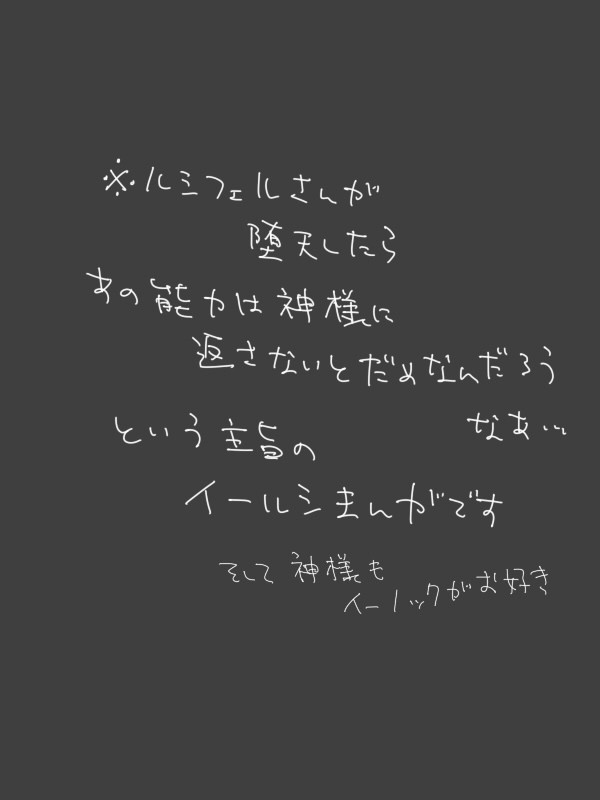 ※ルシフェルさんが
堕天したら
あの能力は神様に
返さないとだめなんだろう
なあ…
という主旨の
イールシまんがです
そして神様も
イーノックがお好き